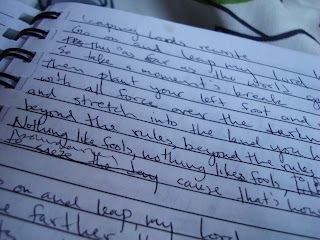 Leaping Lords rewrite
Go on and leap, my lord
this is as far as the world
So take a moment's break
then plant your left foot and
with all forces over the
and stretch into the land you
beyond the rules, beyond the rules
Nothing like fools, nothing like fools, to
to seize the day cause that's how
Go on and leap, my lord
farther